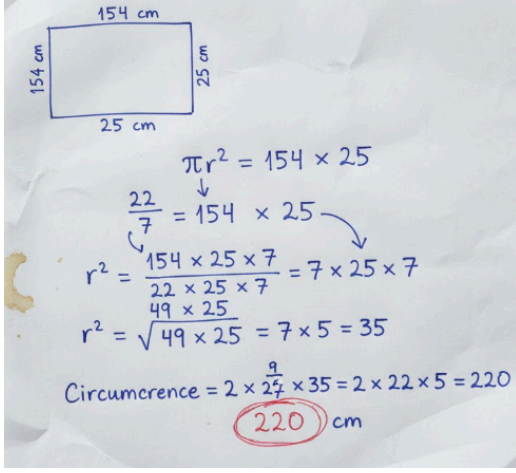 154 cm
154 cm
25 cm
25 cm
πr² = 154 × 25
22/7 = 154 × 25
r² = (154 × 25 × 7)/(22 × 25 × 7) = 7 × 25 × 7
49 × 25
r² = √49 × 25 = 7 × 5 = 35
Circumcrence = 2 × × 35 = 2 × 22 × 5 = 220
220 cm